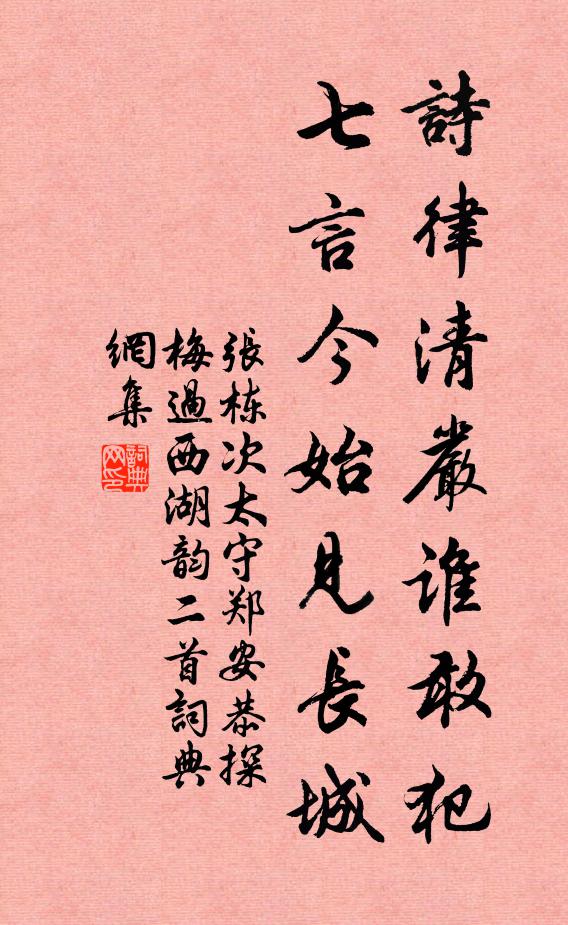 詩律清嚴誰敢犯
七言今始見長城
張栋次太守郑安恭探
梅過西湖韵二首詞典
網集
詞典
网印